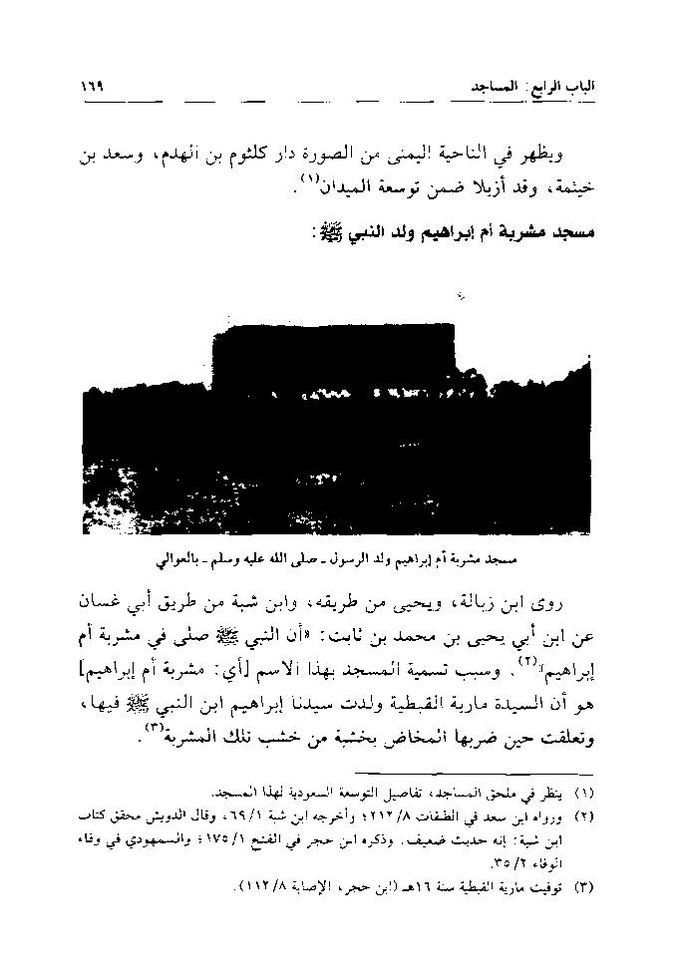 الباب الرابع: المساجد ١٦٩
ويظهر في الناحية اليمنى من الصورة دار كلثوم بن الهدم، وسعد بن
خيثمة، وقد أزيلا ضمن توسعة الميدان(١).
مسجد مشربة أم إبراهيم ولد النبي ﷺ:
مسجد مشربة أم إبراهيم ولد الرسول ـ صلى الله عليه وسلم ـ بالعوالي
روى ابن زبالة، ويحيى من طريقه، وابن شبة من طريق أبي غسان
عن ابن أبي يحيى بن محمد بن ثابت: «أن النبي ﷺ صلى في مشربة أم
إبراهيم»(٢). وسبب تسمية المسجد بهذا الاسم [أي: مشربة أم إبراهيم]
هو أن السيدة مارية القبطية ولدت سيدنا إبراهيم ابن النبي ﷺ فيها،
وتعلقت حين ضربها المخاض بخشبة من خشب تلك المشربة(٣).
(١) ينظر في ملحق المساجد، تفاصيل التوسعة السعودية لهذا المسجد.
(٢) ورواه ابن سعد في الطبقات ٢١٢/٨؛ وأخرجه ابن شبة ٦٩/١، وقال الدويش محقق كتاب
ابن شبة: إنه حديث ضعيف. وذكره ابن حجر في الفتح ١٧٥/١؛ والسمهودي في وفاء
الوفاء ٣٥/٢.
(٣) توفيت مارية القبطية سنة ١٦هـ (ابن حجر، الإصابة ١١٢/٨).